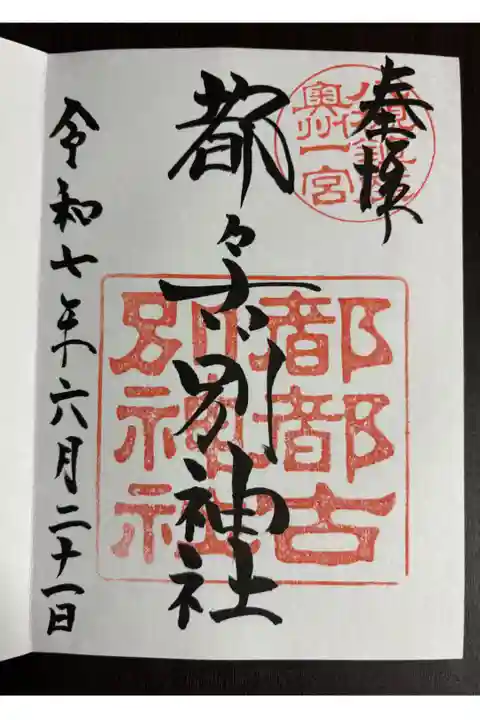 奉拝
八槻鎮座
奥州一宮
都々古別神社
都都古
別神社
令和七年六月二十一日